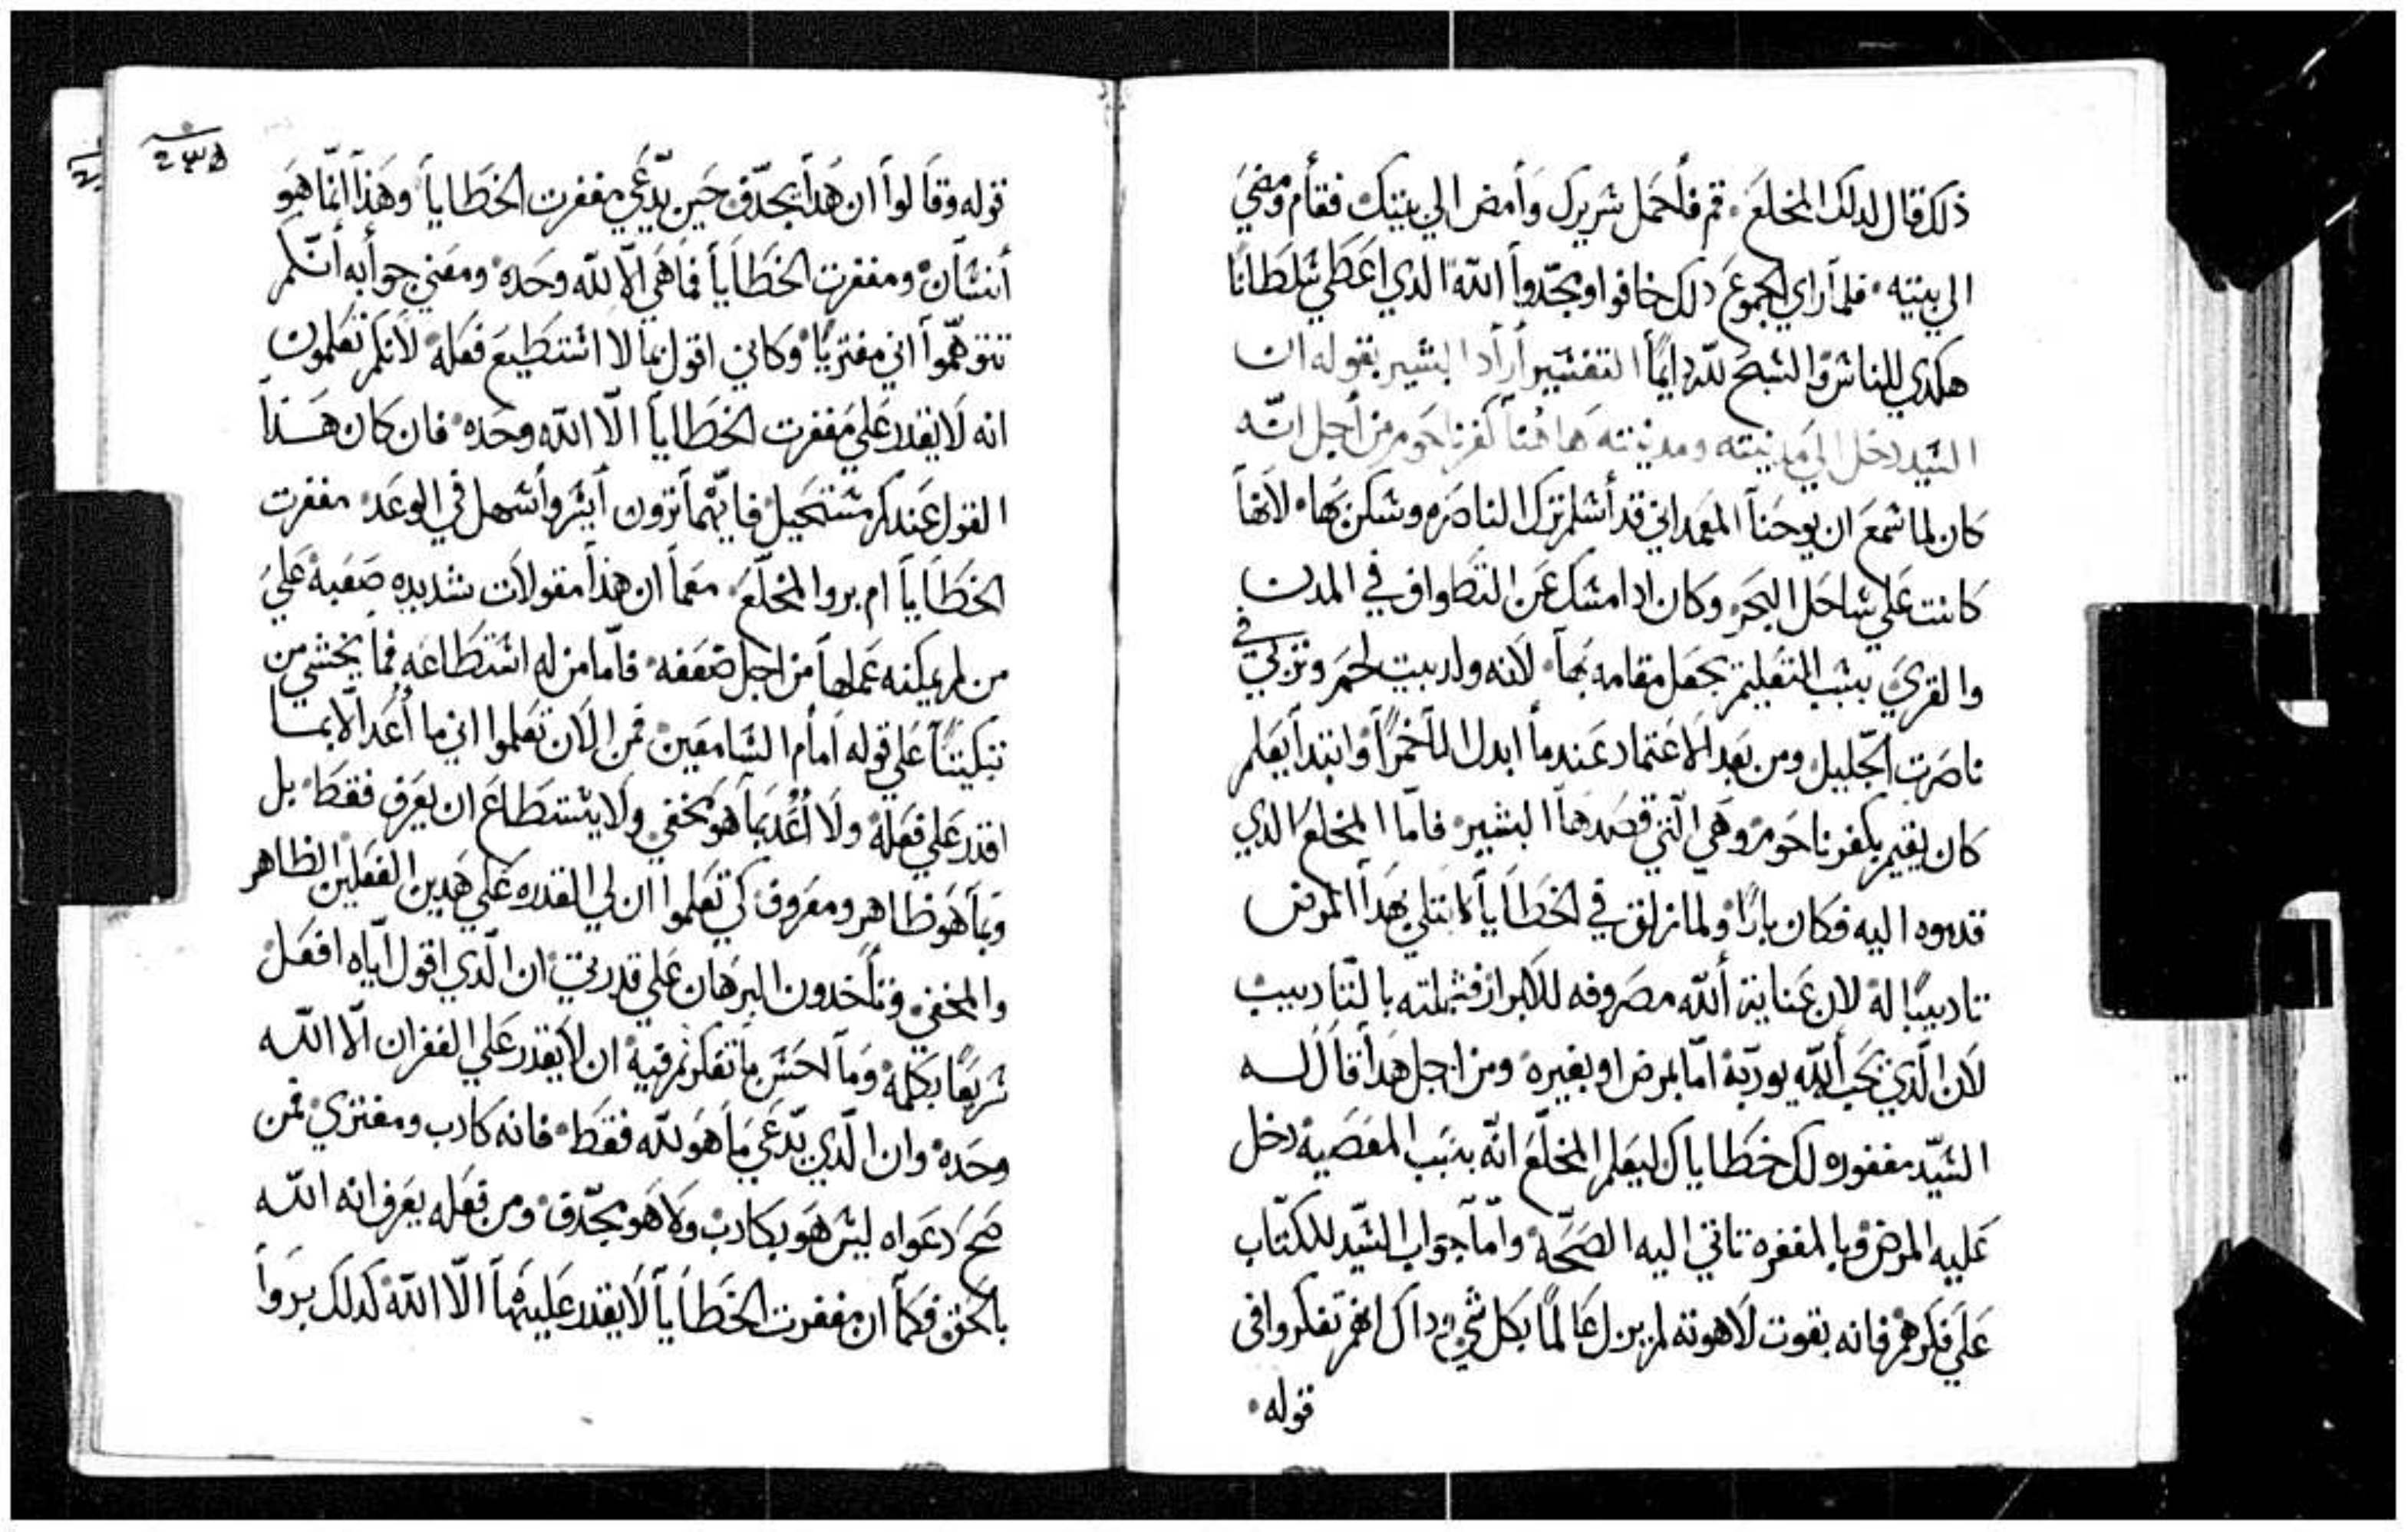 ذلك قال لدلك المخلع. قم فأحمل شريرك وأمض الي بيتك فقام ومضي
الي بيته. فلما راي الجموع دلك خافوا ومجّدوا اللّه الدي اعطي شلطانا
هكدي للناش والشبح للّه دايمًا التفشير أراد البشير بقوله ان
الشيد دخل الي مدينته ومدينته هاهنا كفرناحوم من أجل انّه
كان لما شمع ان يوحنا المعمداني قد أشلم ترك الناصره وشكن بها. لانها
كانت علي شاحل البحر وكان ادا امشك عن التطواف في المدن
والقري بشبب التعليم يجعل مقامه بها. لانه ولد ببيت لحم وتربي في
ناصرت الجليل ومن بعد الاعتماد عندما ابدل الما خمرًا وابتدا يعلم
كان يقيم بكفرناحوم وهي الّتي قصدها البشير. فامّا المخلع الدي
قدموه اليه فكان بارًا ولما زلق في الخطايا ابتلي بهدا المرض
تاديبًا له لان عناية أللّه مصروفه للابرار فشملته بالتاديب
لان الّدي يحب أللّه يودّبه امّا بمرض او بغيره ومن اجل هدا قال له
الشيّد مغفوره لك خطاياك ليعلم المخلّع انّه بشبب المعصية دخل
عليه المرض وبالمغفره تاتي اليه الصحّة وامّا جواب الشيّد للكتّاب
علي فكرهم فانه بقوت لاهوته لم يزل عالمًا بكل شي داك انهم تفكروا في
قوله.
٢٣٥
قوله وقالوا ان هدا يجدّف حين يدّعي مغفرت الخطايا وهذا انّما هو
أنشان ومغفرت الخطايا فما هي الّا للّه وحده ومعني جوابه أنّكم
تتوهّموا اني مفتريًا وكاني اقول بما لا اشتطيع فعله لانكم تعلمون
انه لا يقدر علي مغفرت الخطايا الّا اللّه وحده. فان كان هدا
القول عندكم مشتحيل فايّهما ترون أيشر وأشهل في الوعد. مغفرت
الخطايا ام بروا المخلّع. معما ان هذا مقولات شديده صعبة علي
من لم يمكنه عملها من اجل ضعفه. فامّا من له اشتطاعه فما يخشي من
تبكيتنا علي قوله أمام الشامعين. فمن الان تعلموا اني ما أُعد الّا بما
اقدر علي فعله ولا أُعد بما هو مخفي ولا يشتطاع ان يعرف فقط. بل
وبما هو ظاهر ومعروف كي تعلموا ان لي القدره علي هدين الفعلين الظاهر
والمخفي. وتأخدون البرهان علي قدرتي. ان الّدي اقول ايّاه افعل
شريعًا بكلمة وما احشن ما تفكرتم فيه ان لا يقدر علي الغفران الّا اللّه
وحده. وان الّدي يدّعي ما هو للّه فقط. فانه كادب ومفتري فمن
صح دعواه ليش هو بكادب ولا هو يجدّف ومن فعله يعرف انه اللّه
بالحق فكما ان مغفرت الخطايا لا يقدر عليها الّا اللّه كدلك بروا